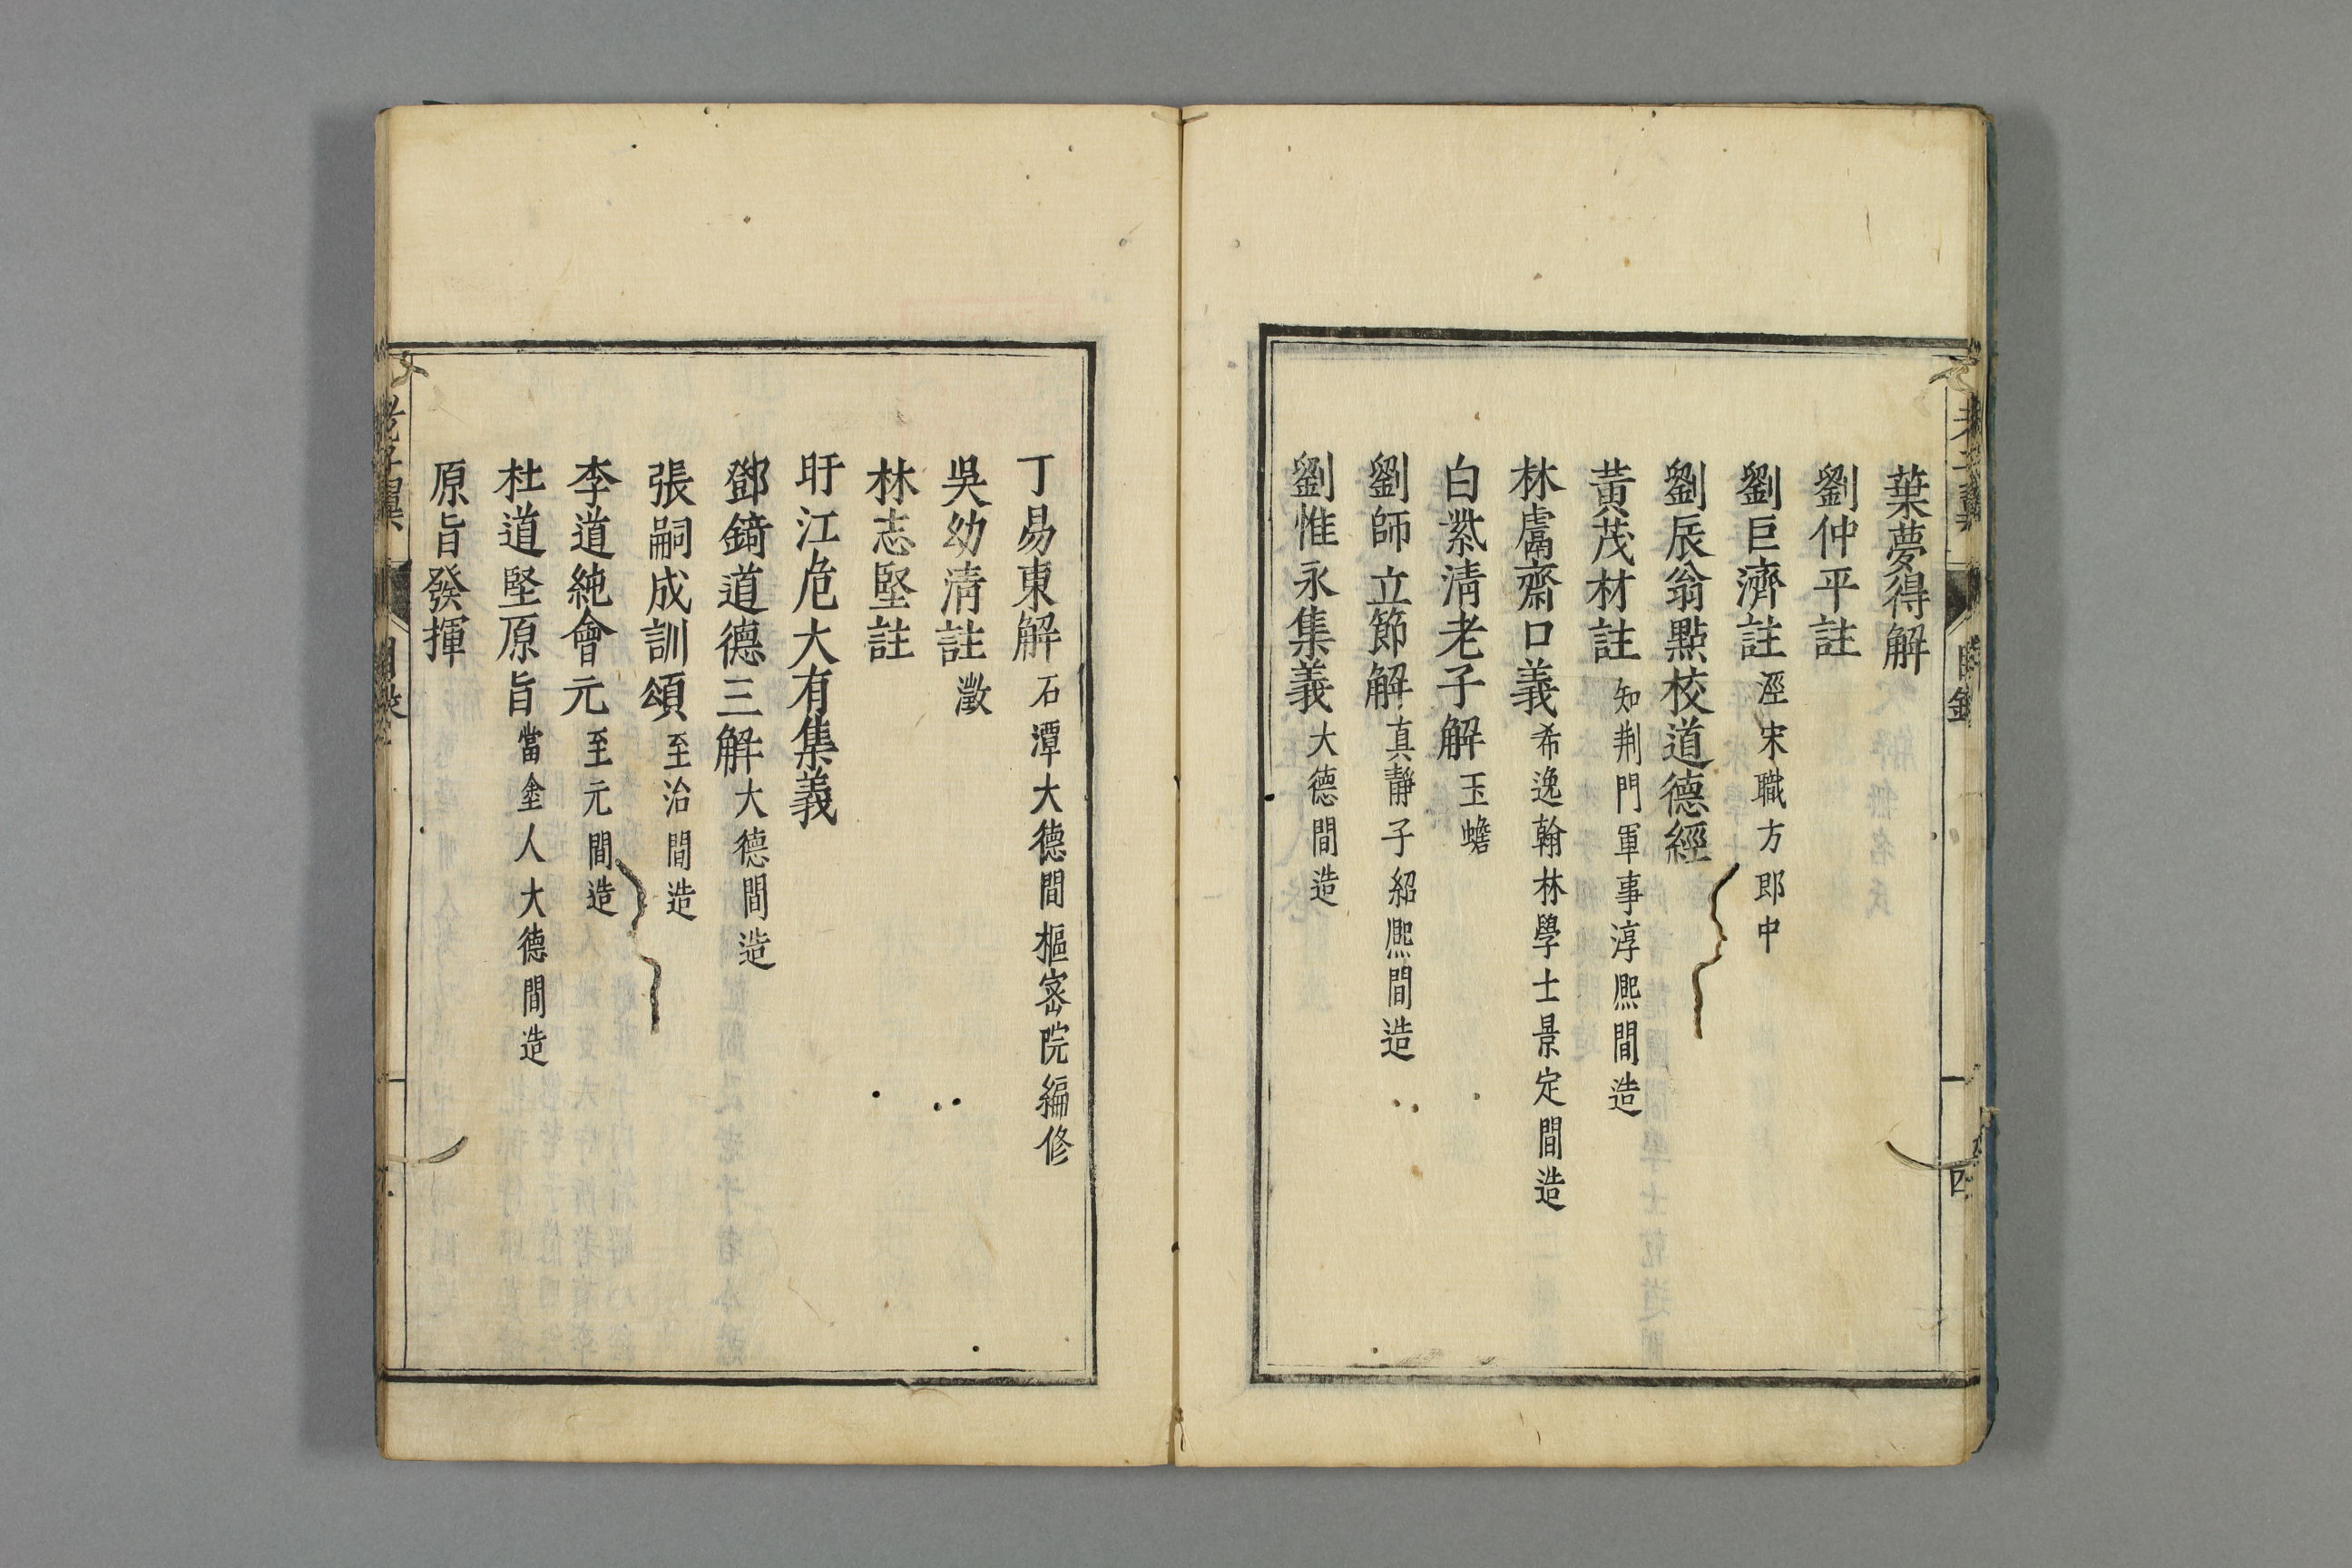 葉夢得解
劉仲平註
劉巨濟註 涇宋職方郎中
劉辰翁點校道德經
黃茂材註 知荆門軍事淳熈間造
林鬳齋口義 希逸翰林學士景定間造
白紫清老子解 玉蟾
劉師立節解 真靜子紹熈間造
劉惟永集義 大德間造
丁易東解 石潭大德間樞宻院編修
吳幼清註 澂
林志堅註
盱江危大有集義
鄧錡道德三解 大德間造
張嗣成訓頌 至治間造
李道純會元 至元間造
杜道堅原旨 當塗人大德間造
原旨發揮
老子翼
目錄
四